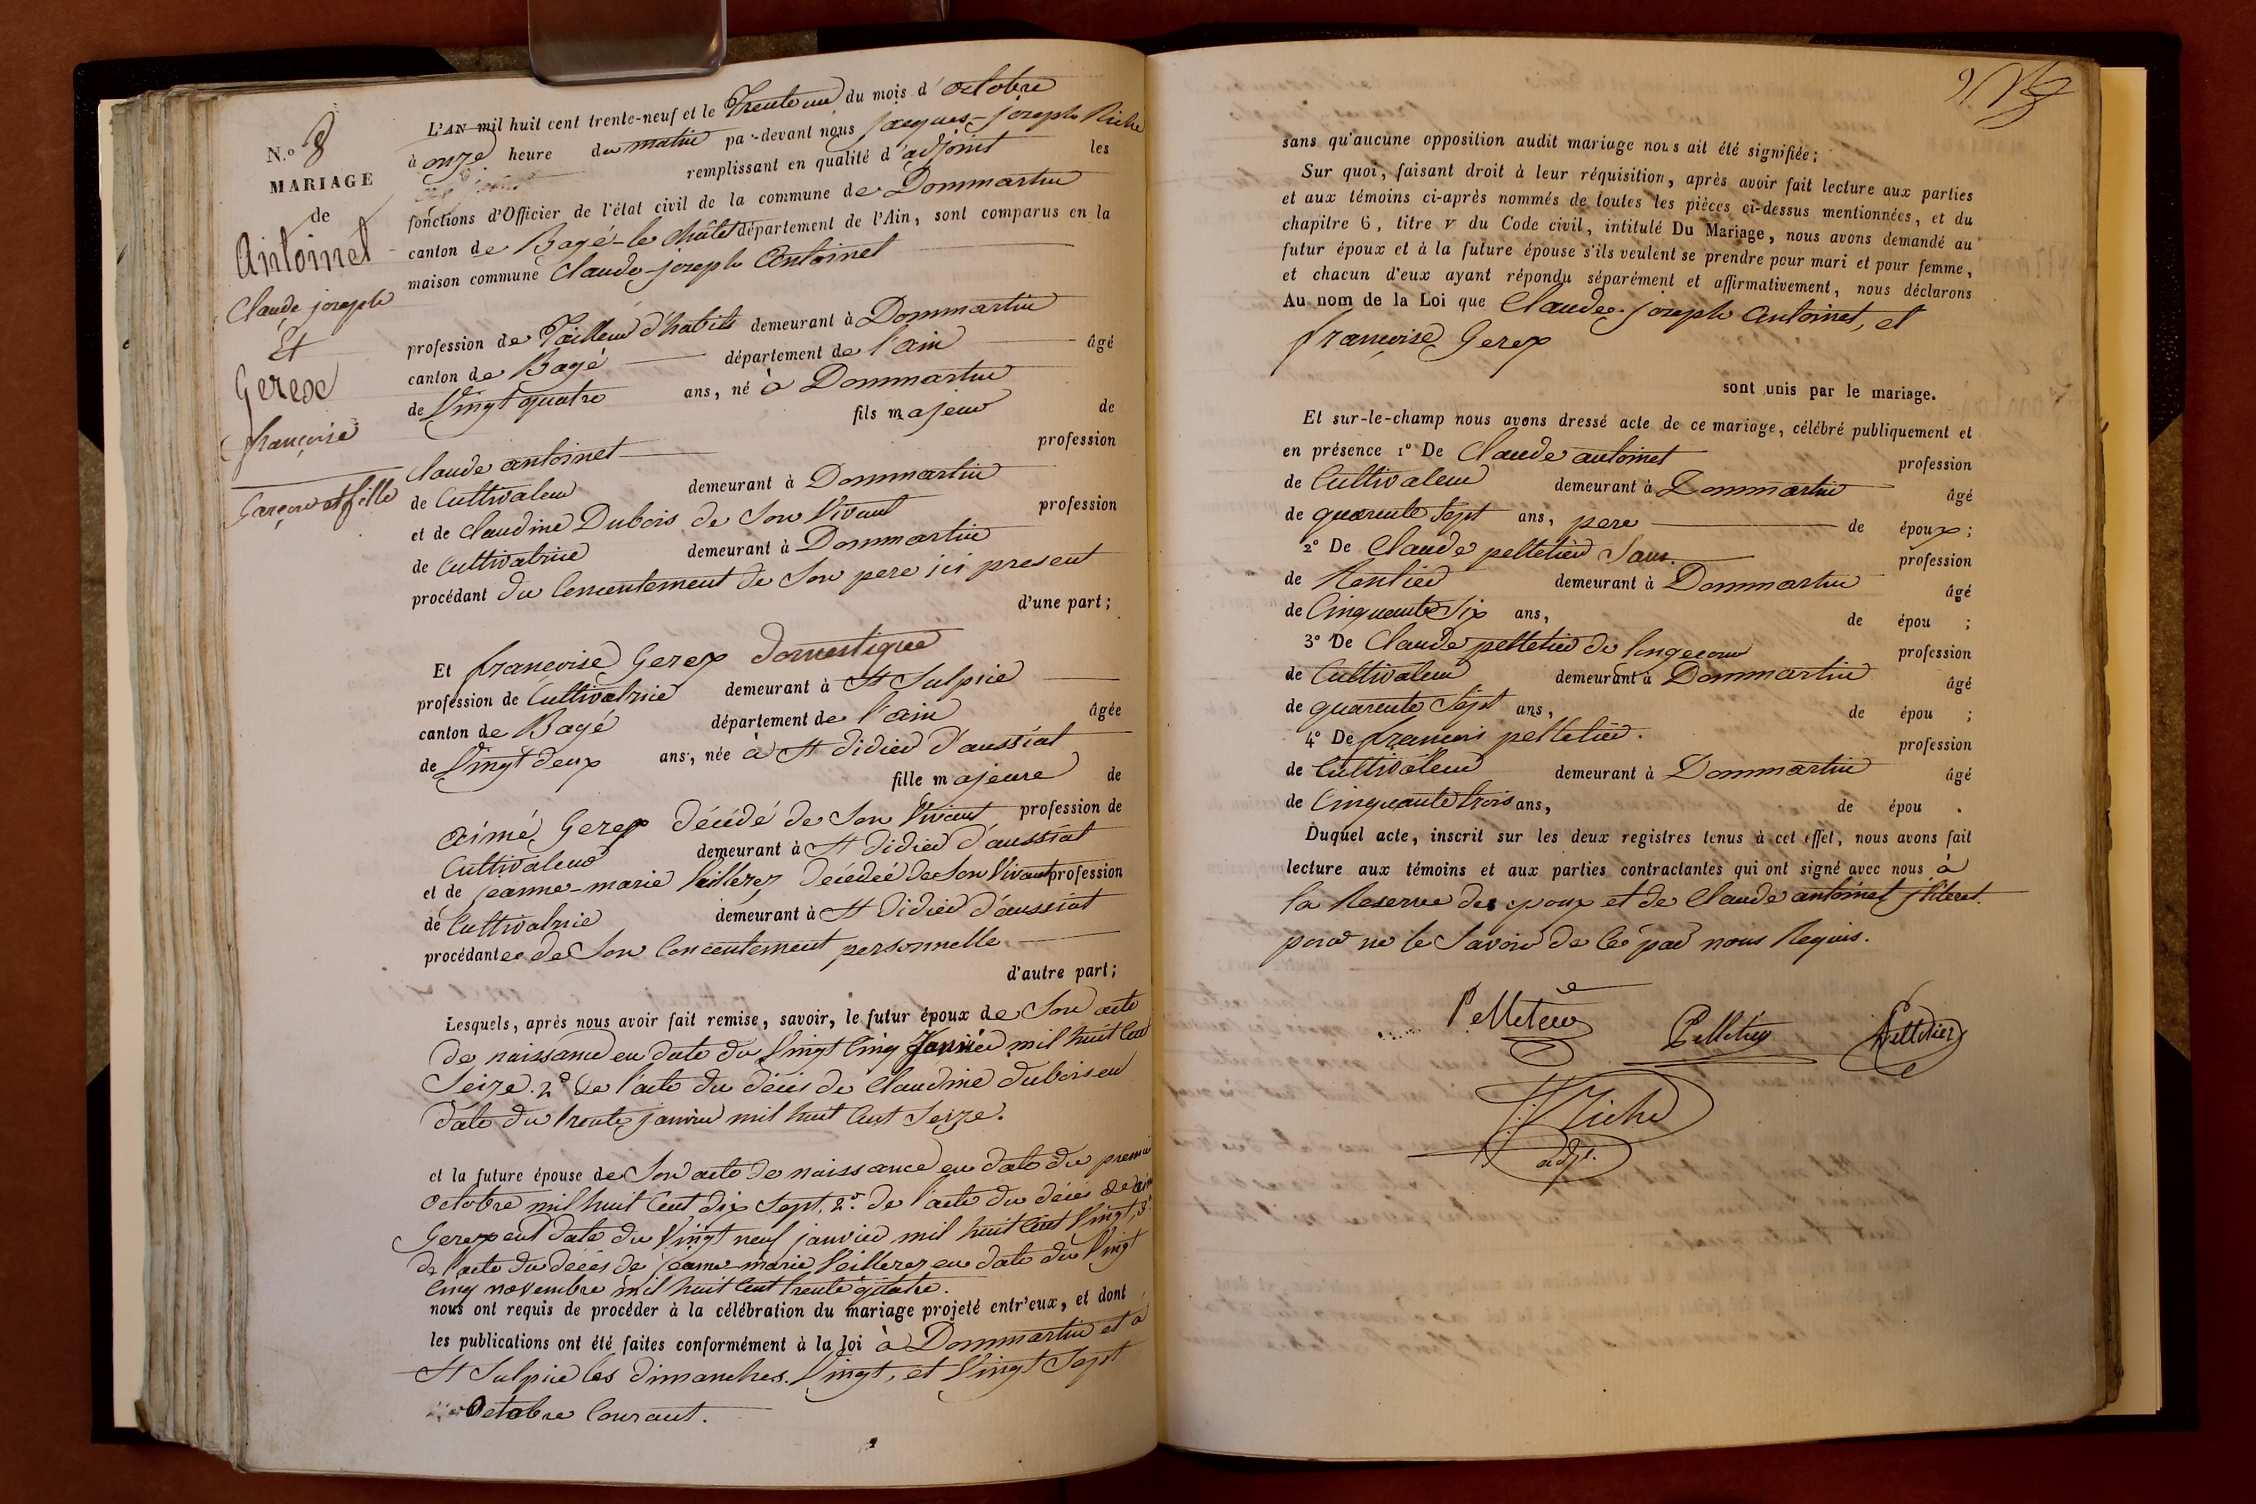 N.º 8
MARIAGE
de
Antoinet
Claude joseph
Et
Gerex
françoise
Garçon et fille
L'AN mil huit cent trente-neuf et le Trente un du mois d'octobre
à onze heure du matin pa-devant nous jacques-joseph Riche
remplissant en qualité d'adjoint les
fonctions d'Officier de l'état civil de la commune de Dommartin
canton de Bagé-le châtel département de l'Ain, sont comparus en la
maison commune Claude-joseph Antoinet
profession de Tailleur d'habits demeurant à Dommartin
canton de Bagé département de l'ain âgé
de Vingt quatre ans, né à Dommartin
fils majeur de
Claude antoinet profession
de Cultivateur demeurant à Dommartin
et de Claudine Dubois de Son Vivant profession
de Cultivatrice demeurant à Dommartin
procédant du Concentement de Son pere ici present
d'une part;
Et françoise Gerex domestique
profession de Cultivatrice demeurant à St Sulpice
canton de Bagé département de l'ain âgée
de Vingt deux ans, née à St didier d'aussiat
fille majeure de
aimé Gerex décédé de Son Vivant profession de
Cultivateur demeurant à St didier d'aussiat
et de jeanne-marie Veillerez décédée de Son Vivant profession
de Cultivatrice demeurant à St didier d'aussiat
procédante de Son Concentement personnelle
d'autre part;
Lesquels, après nous avoir fait remise, savoir, le futur époux de Son acte
de naissance en date du Vingt Cinq Janvier mil huit Cent
Seize. 2º de l'acte du décés de Claudine dubois en
date du trente janvier mil huit Cent Seize.
et la future épouse de Son acte de naissance en date du premier
octobre mil huit Cent dix Sept. 2º. de l'acte du décés de aimé
Gerex en date du Vingt neuf janvier mil huit Cent Vingt, 3º
de l'acte du décés de jeanne-marie Veillerez en date du Vingt
Cinq novembre mil huit Cent trente quatre.
nous ont requis de procéder à la célébration du mariage projeté entr'eux, et dont
les publications ont été faites conformément à la loi à Dommartin et à
St Sulpice les dimanches. Vingt, et Vingt Sept
Octobre Courant.
sans qu'aucune opposition audit mariage nous ait été signifiée;
Sur quoi, faisant droit à leur réquisition, après avoir fait lecture aux parties
et aux témoins ci-après nommés de toutes les pièces ci-dessus mentionnées, et du
chapitre 6, titre v du Code civil, intitulé Du Mariage, nous avons demandé au
futur époux et à la future épouse s'ils veulent se prendre pour mari et pour femme,
et chacun d'eux ayant répondu séparément et affirmativement, nous déclarons
Au nom de la Loi que Claude-joseph antoinet, et
françoise Gerex
sont unis par le mariage.
Et sur-le-champ nous avons dressé acte de ce mariage, célébré publiquement et
en présence 1º De Claude antoinet profession
de Cultivateur demeurant à Dommartin âgé
de quarente Sept ans, pere de époux;
2º De Claude pelletier profession
de Rentier demeurant à Dommartin âgé
de Cinquante Six ans, de épou ;
3º De Claude pelletier de longecour profession
de Cultivateur demeurant à Dommartin âgé
de quarente Sept ans, de épou ;
4º De françois pelletier. profession
de Cultivateur demeurant à Dommartin âgé
de Cinquante trois ans, de épou .
Duquel acte, inscrit sur les deux registres tenus à cet effet, nous avons fait
lecture aux témoins et aux parties contractantes qui ont signé avec nous à
la Reserve des epoux et de Claude antoinet
pour ne le Savoir de Ce par nous Requis.
Pelletier Pelletier Pelletier
Riche
adjt.